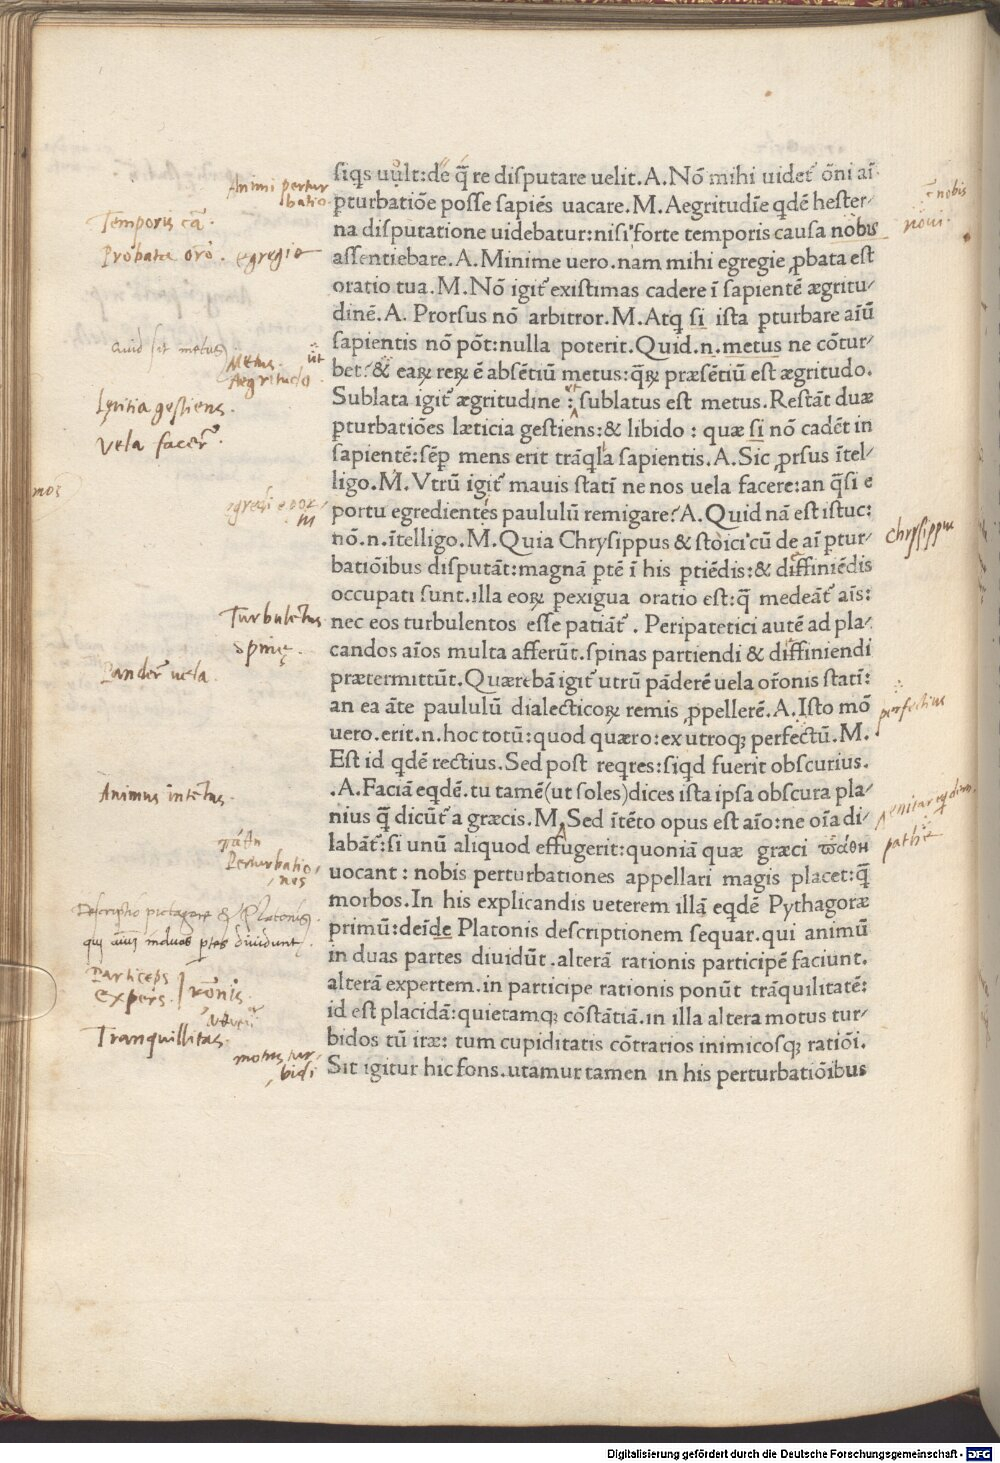 siqs uult: de q̄ re disputare uelit. A. Nō mihi uidet᷑ ōni aī
Animi pertur
batio
pturbatiōe posse sapiēs uacare. M. Aegritudīe qdē hester/
c̄ nobis
Temporis cā.
na disputatione uidebatur: nisi forte temporis causa nobis
noui.
Probata orō. egregie
assentiebare. A. Minime uero. nam mihi egregie ꝓbata est
oratio tua. M. Nō igit᷑ existimas cadere ī sapientē ægritu/
dinē. A. Prorsus nō arbitror. M. Atq si ista pturbare aīū
Quid sit metus
sapientis nō pōt: nulla poterit. Quid.n.metus ne cōtur/
Metus.
Aegritudo
ut
bet? & eaꝝ reꝝ ē absētiū metus: qꝝ præsētiū est ægritudo.
Lętitia gestiens.
Sublata igit᷑ ægritudine : sublatus est metus. Restāt duæ
Vela facer̄.
pturbatiōes læticia gestiens: & libido : quæ si nō cadēt in
sapientē: sēp mens erit trāqla sapientis. A. Sic ꝓrsus ītel/
ligo. M. Vtrū igit᷑ mauis statī ne nos uela facere: an q̄si e
portu egredientes paululū remigare? A. Quid nā est istuc:
Chrysippus
nō.n.ītelligo. M. Quia Chrysippus & stoici cū de aī ptur/
batiōibus disputāt: magnā ptē ī his ptiēdis: & diffiniēdis
occupati sunt. illa eoꝝ pexigua oratio est: q̄ medeāt᷑ aīs:
Turbulētus
nec eos turbulentos esse patiāt᷑ . Peripatetici autē ad pla/
Spinę.
candos aīos multa afferūt. spinas partiendi & diffiniendi
Pander̄ uela.
prætermittūt. Quærebā igit᷑ utrū pāderē uela or̄onis statī:
perfectius
an ea āte paululū dialecticoꝝ remis ꝓpellerē. A. Isto mō
uero. erit.n. hoc totū: quod quæro: ex utroqꝫ perfectū. M.
Est id qdē rectius. Sed post reqres: siqd fuerit obscurius.
Animus intētus.
. A. Faciā eqdē. tu tamē (ut soles) dices ista ipsa obscura pla/
nius q̄ dicūt᷑ a græcis. M. Sed ītēto opus est aīo: ne oīa di/
pathe
πάθη
Perturbatio/
nes
labāt᷑: si unū aliquod effugerit: quoniā quæ græci πάθη
uocant : nobis perturbationes appellari magis placet: q̄
Descriptio pictagore & Platonis
morbos. In his explicandis ueterem illā eqdē Pythagoræ
qui aīum in duas ptes diuidunt.
primū: deīde Platonis descriptionem sequar. qui animū
Particeps
Expers. rōnis
in duas partes diuidūt. alterā rationis participē faciunt.
alterā expertem. in participe rationis ponūt trāquilitatē:
Tranquillitas.
id est placidā: quietamqꝫ cōstātiā. in illa altera motus tur/
motus tur/
bidi
bidos tū iræ: tum cupiditatis cōtrarios inimicosqꝫ ratiōi.
Sit igitur hic fons. utamur tamen in his perturbatiōibus
Digitalisierung gefördert durch die Deutsche Forschungsgemeinschaft - DFG